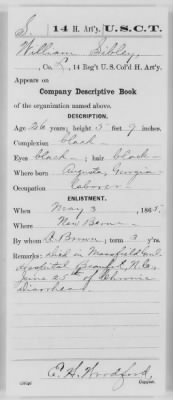 S. | 14 H. Art'y. | U.S.C.T.
William Sibley
, Co. L, 14 Reg't U. S. Col'd H. Art'y.
Appears on
Company Descriptive Book
of the organization named above.
DESCRIPTION.
Age 26 years; height 5 feet 9 inches.
Complexion black
Eyes black; hair black
Where born Augusta, Georgia
Occupation laborer
ENLISTMENT.
When May 3, 1865.
Where New Berne
By whom C. Brown; term 3 y'rs.
Remarks: Died in Mansfield Genl
Hospital Beaufort, N.C.,
June 25th of Chronic
Diarrhoea
C. H. Woodford
Copyist.